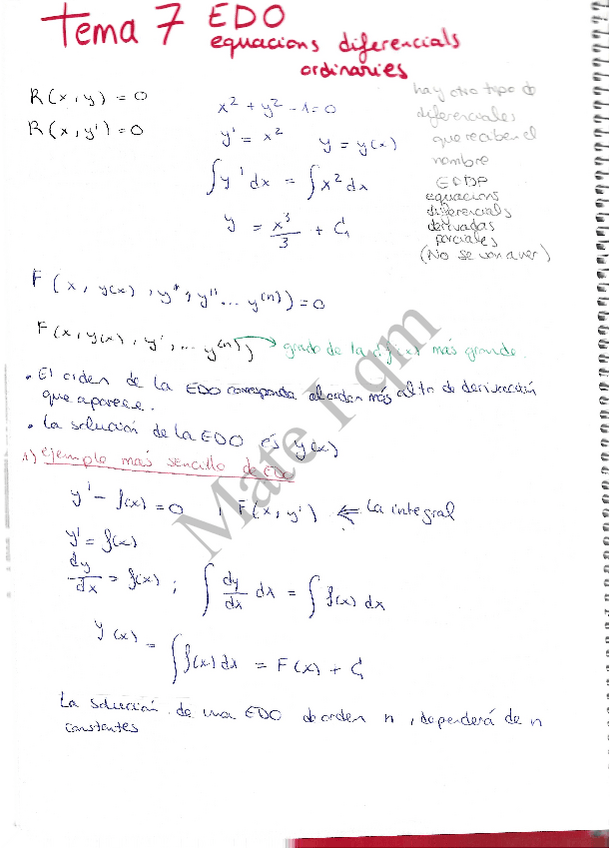 Tema 7 EDO
equacions diferencials
ordinaries
R(x, y) = 0
R(x, y') = 0
x² + y² - 1 = 0
y' = x²   y = y(x)
∫y' dx = ∫x² dx
y = x³/3 + C₁
hay otro tipo de
diferenciales
que reciben el
nombre
EDDP
equacions
diferencials
derivadas
parciales
(No se van a ver)
F(x, y(x), y', y'' ... y⁽ⁿ⁾) = 0
F(x, y(x), y', ... y⁽ⁿ⁾) → grado de la más grande.
• El orden de la EDO corresponde al orden más alto de derivación
que aparece.
• La solución de la EDO és y(x)
1) Ejemplo más sencillo de EDO
y' - f(x) = 0 ; F(x, y') ⇐ La integral
y' = f(x)
dy/dx = f(x) ; ∫ dy/dx dx = ∫ f(x) dx
y(x) = ∫f(x)dx = F(x) + C₁
La solución de una EDO de orden n, dependerá de n
constantes
Mate I qm